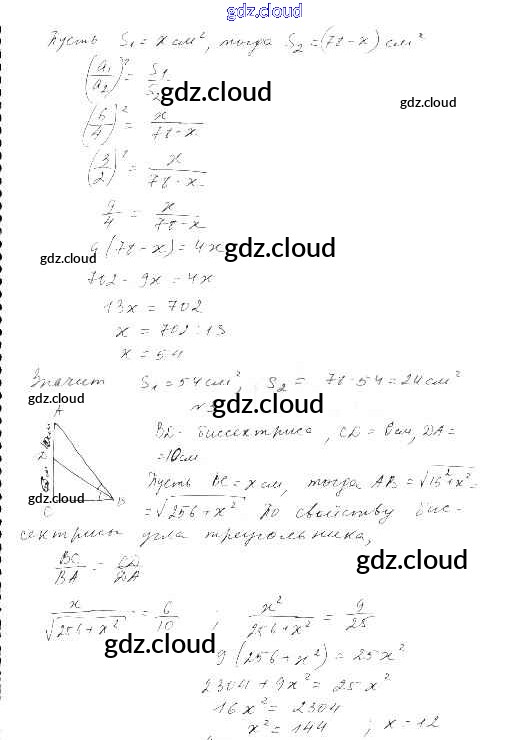 gdz.cloud
Пусть S₁ = x см², тогда S₂ = (78 - x) см²
(a₁/a₂)² = S₁/S₂
gdz.cloud
gdz.cloud
(6/4)² = x/78-x
(3/2)² = x/78-x
9/4 = x/78-x
9(78-x) = 4x
gdz.cloud
gdz.cloud
702 - 9x = 4x
13x = 702
x = 702 : 13
x = 54
Значит S₁ = 54 см², S₂ = 78-54 = 24 см²
gdz.cloud
№3
gdz.cloud
A
BD - биссектриса, CD = 6 см, DA =
= 10 см
D
Пусть BC = x см, тогда AB = √16²+x² =
gdz.cloud
C B
= √256+x² По свойству бис-
сектрисы угла треугольника,
BC/BA = CD/DA
gdz.cloud
x/√256+x² = 6/10 ; x²/256+x² = 9/25
gdz.cloud
9(256+x²) = 25x²
2304 + 9x² = 25x²
16x² = 2304
x² = 144 ; x = 12